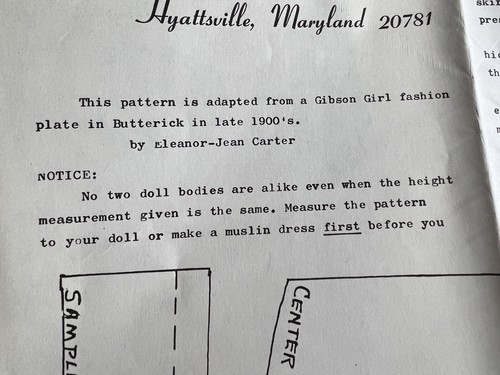 Hyattsville, Maryland 20781
This pattern is adapted from a Gibson Girl fashion
plate in Butterick in late 1900's.
by Eleanor-Jean Carter
NOTICE:
No two doll bodies are alike even when the height
measurement given is the same. Measure the pattern
to your doll or make a muslin dress first before you
CENTER